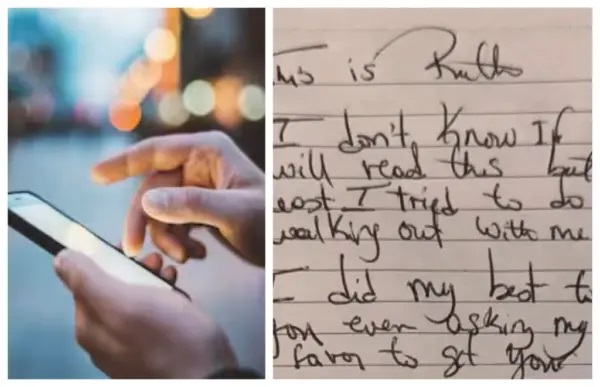 This is Ruth
I don't know If
will read this but
east I tried to do
walking out with me
I did my best to
you even asking my
favor to get your